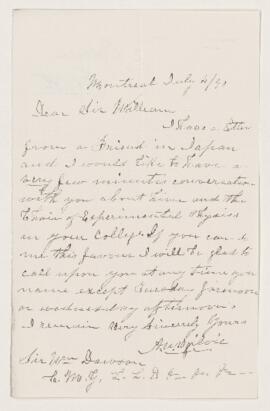 Montreal July 4/90
Dear Sir William
I have a letter
from a Friend in Japan
and I would like to have a
very few minutes conversation
with you about him and the
Chair of Experimental Physics
in your College If you can do
me this favour I will be glad to
call upon you at any time you
name except Tuesday forenoon
or wednesday afternoon.
I remain Very Sincerely Yours
Sir Wm Dawson
C. M. G, L. L. D